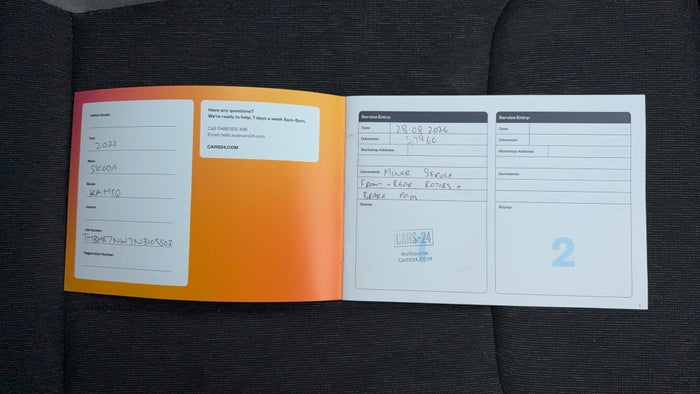 Vehicle Details:
Year:
2022
Make:
SKODA
Model:
KAMIQ
Variant:
VIN Number:
Registration Number:
Have any questions?
We're ready to help, 7 days a week 8am-8pm.
Call:
Email:
CARS24.COM
Service Entry:
Date:
28.08 2026
Odometer:
59960
Workshop Address:
Comments: MINOR SERVICE
FRONT + REAR ROTORS +
BRAKE PADS
Stamp:
CARS-24
Melbourne
CARS24.COM
1
Service Entry:
Date:
Odometer:
Workshop Address:
Comments:
Stamp:
2